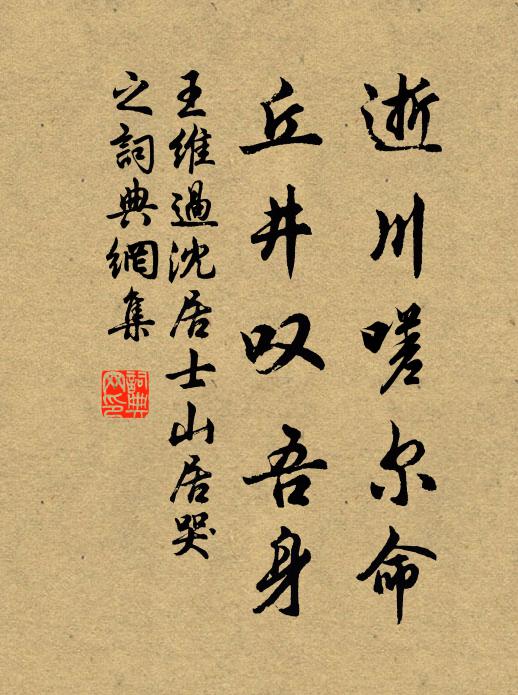 逝川嗟尔命
丘井叹吾身
王维過沈居士山居哭
之詞典網集
詞典
网印